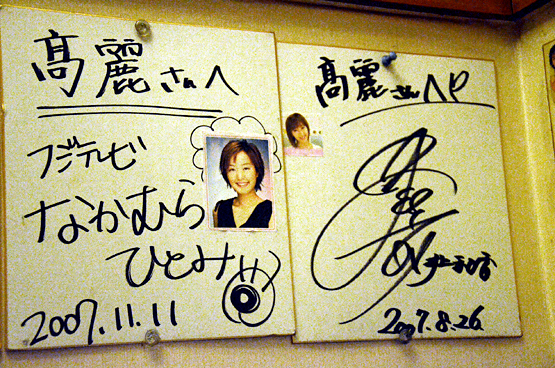 高麗さんへ
フジテレビ
なかむら
ひとみ
2007.11.11
高麗さんへ
2007.8.26.